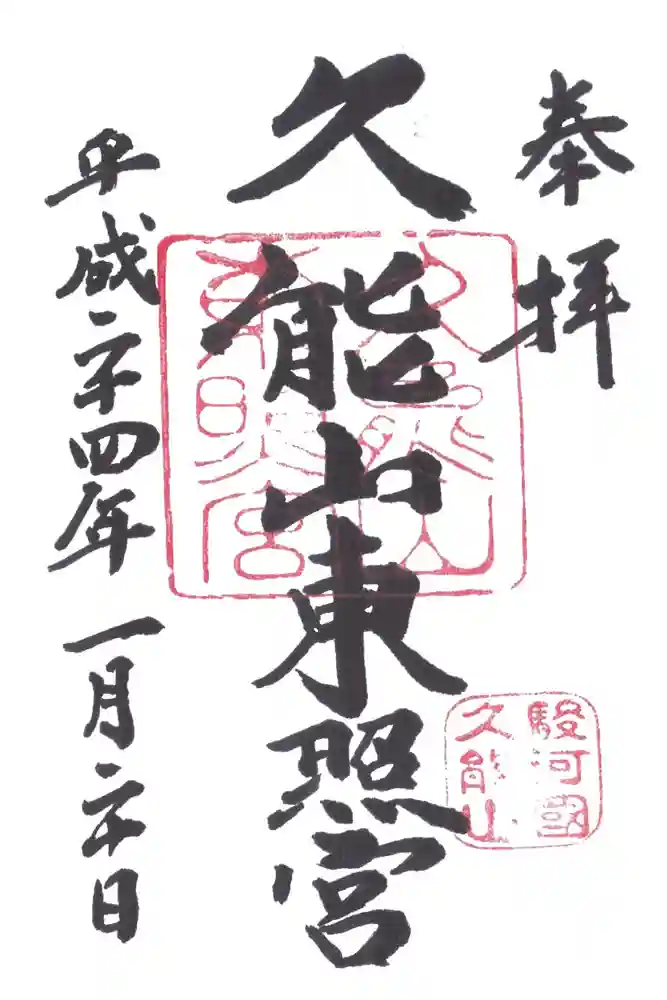 奉拝
久能山東照宮
久能山
東照宮
駿河國
久能山
平成二十四年一月二十日